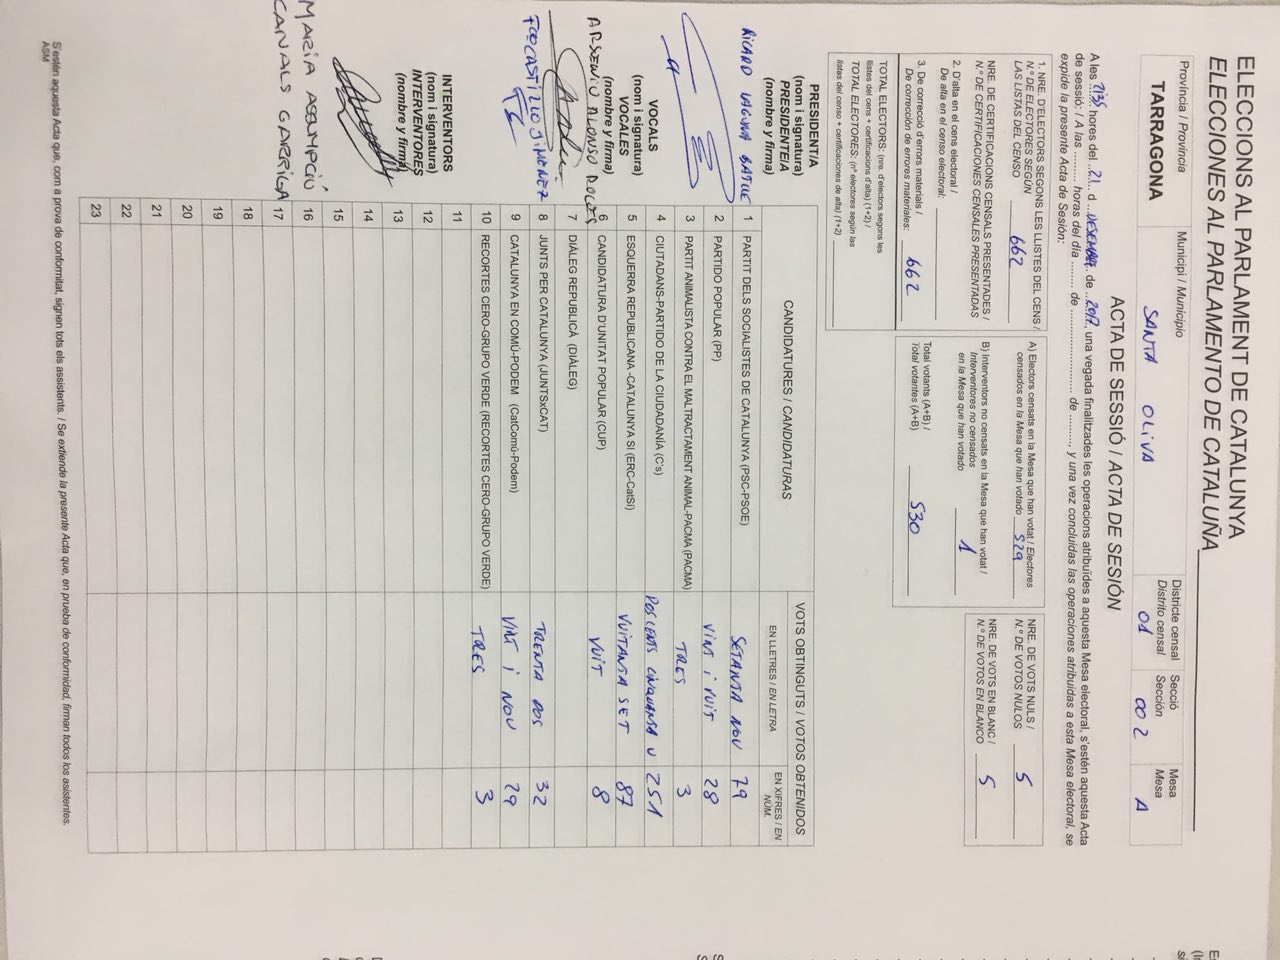 ELECCIONS AL PARLAMENT DE CATALUNYA
ELECCIONES AL PARLAMENTO DE CATALUÑA
ACTA DE SESSIÓ / ACTA DE SESIÓN
Província / Provincia
TARRAGONA
Municipi / Municipio
SANTA OLIVA
Districte censal
Distrito censal
01
Secció
Sección
002
Mesa
Mesa
A
A les hores del 21 d DESEMBRE de 2017, una vegada finalitzades les operacions atribuïdes a aquesta Mesa electoral, s'estén aquesta Acta
de sessió: / A las ......... horas del día ......... de ......................... de ........., y una vez concluidas las operaciones atribuidas a esta Mesa electoral, se
expide la presente Acta de Sesión:
1. NRE. D'ELECTORS SEGONS LES LLISTES DEL CENS /
N.º DE ELECTORES SEGÚN
LAS LISTAS DEL CENSO 662
NRE. DE CERTIFICACIONS CENSALS PRESENTADES /
N.º DE CERTIFICACIONES CENSALES PRESENTADAS
2. D'alta en el cens electoral /
De alta en el censo electoral:
3. De correcció d'errors materials /
De corrección de errores materiales: 662
TOTAL ELECTORS: (nre. d'electors segons les
llistes del cens + certificacions d'alta) (1+2) /
TOTAL ELECTORES: (nº electores según las
listas del censo + certificaciones de alta) (1+2)
A) Electors censats en la Mesa que han votat / Electores
censados en la Mesa que han votado 529
B) Interventors no censats en la Mesa que han votat /
Interventores no censados
en la Mesa que han votado 1
Total votants (A+B) /
Total votantes (A+B) 530
NRE. DE VOTS NULS /
N.º DE VOTOS NULOS 5
NRE. DE VOTS EN BLANC /
N.º DE VOTOS EN BLANCO 5
PRESIDENT/A
(nom i signatura)
PRESIDENTE/A
(nombre y firma)
RICARD LAGUNA BATLLE
VOCALS
(nom i signatura)
VOCALES
(nombre y firma)
ARSENIO ALONSO
FCO CASTILLO JIMENEZ
INTERVENTORS
(nom i signatura)
INTERVENTORES
(nombre y firma)
MARIA ASSUMPCIÓ
CANALS GARRIGA
CANDIDATURES / CANDIDATURAS
VOTS OBTINGUTS / VOTOS OBTENIDOS
EN LLETRES / EN LETRA
EN XIFRES / EN NÚM.
1 PARTIT DELS SOCIALISTES DE CATALUNYA (PSC-PSOE) SETANTA NOU 79
2 PARTIDO POPULAR (PP) VINT I VUIT 28
3 PARTIT ANIMALISTA CONTRA EL MALTRACTAMENT ANIMAL-PACMA (PACMA) TRES 3
4 CIUTADANS-PARTIDO DE LA CIUDADANÍA (C's) DOSCENTS CINQUANTA U 251
5 ESQUERRA REPUBLICANA -CATALUNYA SI (ERC-CatSí) VUITANTA SET 87
6 CANDIDATURA D'UNITAT POPULAR (CUP) VUIT 8
7 DIÀLEG REPUBLICÀ (DIÀLEG)
8 JUNTS PER CATALUNYA (JUNTSxCAT) TRENTA DOS 32
9 CATALUNYA EN COMÚ-PODEM (CatComú-Podem) VINT I NOU 29
10 RECORTES CERO-GRUPO VERDE (RECORTES CERO-GRUPO VERDE) TRES 3
11
12
13
14
15
16
17
18
19
20
21
22
23
S'estén aquesta Acta que, com a prova de conformitat, signen tots els assistents. / Se extiende la presente Acta que, en prueba de conformidad, firman todos los asistentes.
ASM